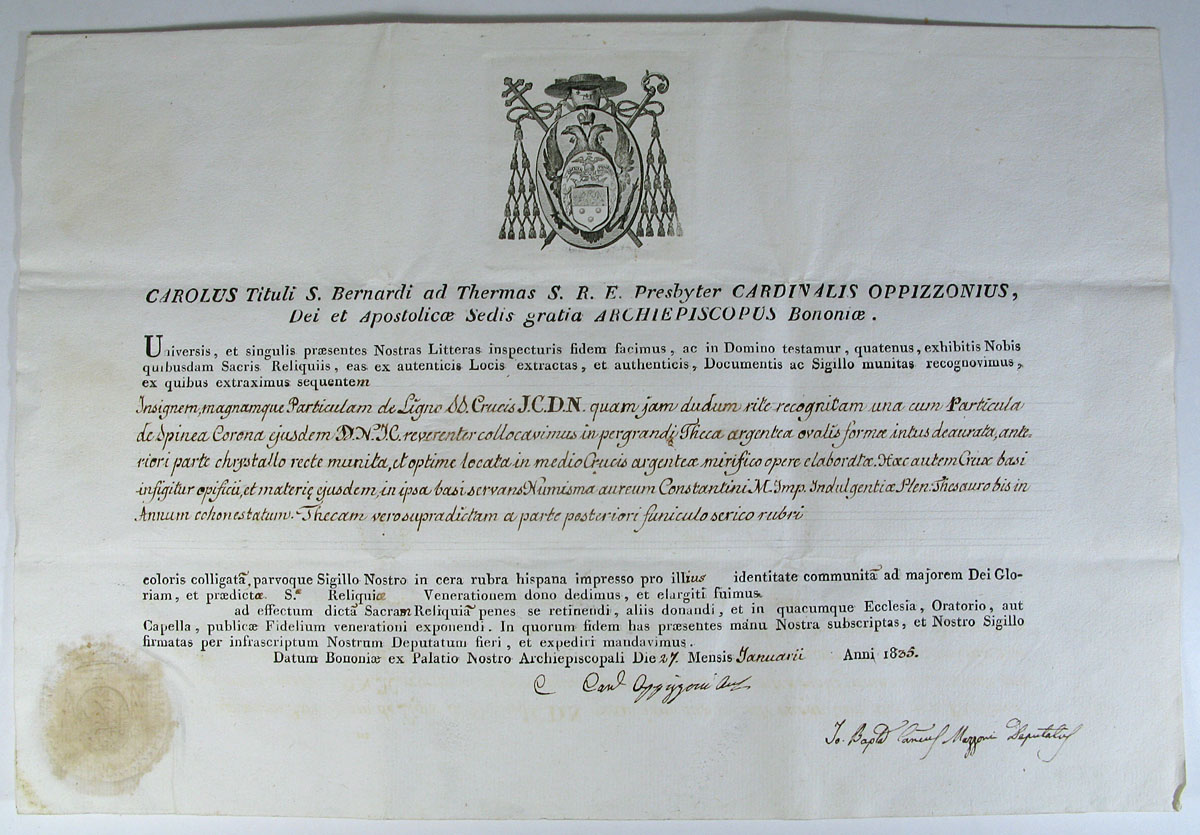 CAROLUS Tituli S. Bernardi ad Thermas S. R. E. Presbyter CARDINALIS OPPIZZONIUS,
Dei et Apostolicæ Sedis gratia ARCHIEPISCOPUS Bononiæ.
Universis, et singulis præsentes Nostras Litteras inspecturis fidem facimus, ac in Domino testamur, quatenus, exhibitis Nobis
quibusdam Sacris Reliquiis, eas ex autenticis Locis extractas, et authenticis, Documentis ac Sigillo munitas recognovimus,
ex quibus extraximus sequentem
Insignem, magnamque Particulam de Ligno SS. Crucis J.C.D.N. quam jam dudum rite recognitam una cum Particula
de Spinea Corona ejusdem D.N.J.C. reverenter collocavimus in pergrandi Theca argentea ovalis formæ intus deaurata, ante-
riori parte chrystallo recte munita, et optime locata in medio Crucis argenteæ mirifico opere elaboratæ. Hæc autem Crux basi
infigitur opificii, et materię ejusdem, in ipsa basi servans Numisma aureum Constantini M. Imp. Indulgentiæ Plen. Thesauro bis in
Annum cohonestatum. Thecam vero supradictam a parte posteriori funiculo serico rubri
coloris colligatã, parvoque Sigillo Nostro in cera rubra hispana impresso pro illius identitate communitã ad majorem Dei Glo-
riam, et prædictæ S.æ Reliquiæ Venerationem dono dedimus, et elargiti fuimus
ad effectum dictã Sacram Reliquiã penes se retinendi, aliis donandi, et in quacumque Ecclesia, Oratorio, aut
Capella, publicæ Fidelium venerationi exponendi. In quorum fidem has præsentes manu Nostra subscriptas, et Nostro Sigillo
firmatas per infrascriptum Nostrum Deputatum fieri, et expediri mandavimus.
Datum Bononiæ ex Palatio Nostro Archiepiscopali Die 27. Mensis Januarii Anni 1835.
C Card Oppizzoni
Jo. Bapta Mazzoni Deputatus